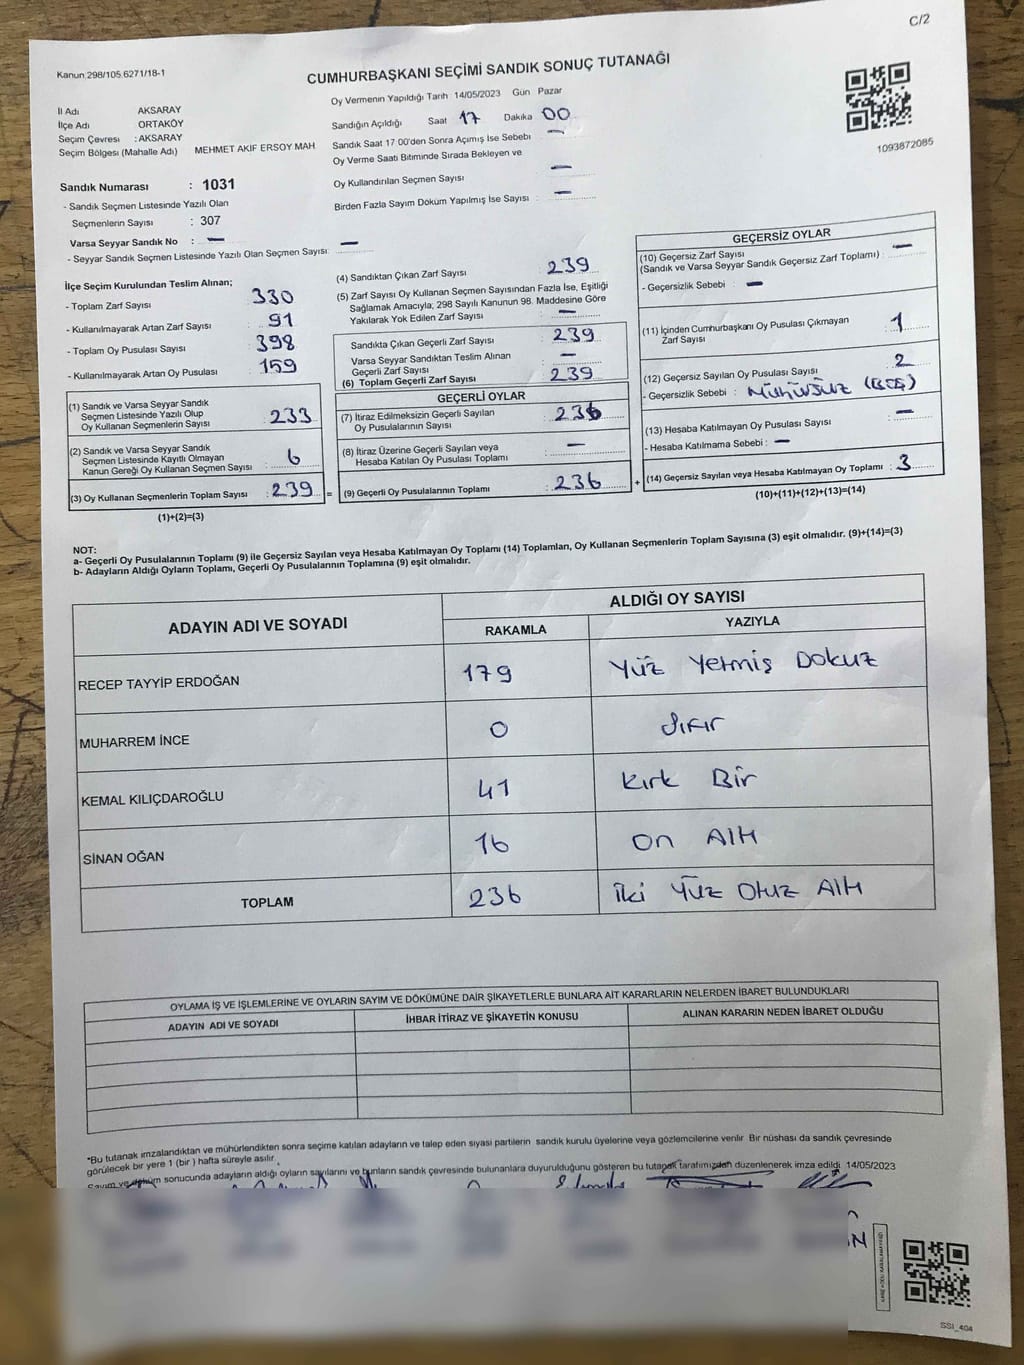 C/2
Kanun 298/105.6271/18-1
CUMHURBAŞKANI SEÇİMİ SANDIK SONUÇ TUTANAĞI
İl Adı AKSARAY
İlçe Adı ORTAKÖY
Seçim Çevresi : AKSARAY
Seçim Bölgesi (Mahalle Adı) MEHMET AKIF ERSOY MAH
Sandık Numarası : 1031
- Sandık Seçmen Listesinde Yazılı Olan
Seçmenlerin Sayısı : 307
Varsa Seyyar Sandık No : —
- Seyyar Sandık Seçmen Listesinde Yazılı Olan Seçmen Sayısı: —
Oy Vermenin Yapıldığı Tarih 14/05/2023 Gün Pazar
Sandığın Açıldığı Saat 17 Dakika 00
Sandık Saat 17 00'den Sonra Açımış İse Sebebi —
Oy Verme Saati Bitiminde Sırada Bekleyen ve
Oy Kullandırılan Seçmen Sayısı —
Birden Fazla Sayım Döküm Yapılmış İse Sayısı : —
1093872085
İlçe Seçim Kurulundan Teslim Alınan;
- Toplam Zarf Sayısı 330
- Kullanılmayarak Artan Zarf Sayısı : 91
- Toplam Oy Pusulası Sayısı : 398
- Kullanılmayarak Artan Oy Pusulası : 159
(1) Sandık ve Varsa Seyyar Sandık
Seçmen Listesinde Yazılı Olup
Oy Kullanan Seçmenlerin Sayısı : 233
(2) Sandık ve Varsa Seyyar Sandık
Seçmen Listesinde Kayıtlı Olmayan
Kanun Gereği Oy Kullanan Seçmen Sayısı : 6
(3) Oy Kullanan Seçmenlerin Toplam Sayısı : 239 =
(1)+(2)=(3)
(4) Sandıktan Çıkan Zarf Sayısı 239
(5) Zarf Sayısı Oy Kullanan Seçmen Sayısından Fazla İse, Eşitliği
Sağlamak Amacıyla; 298 Sayılı Kanunun 98. Maddesine Göre
Yakılarak Yok Edilen Zarf Sayısı : —
Sandıkta Çıkan Geçerli Zarf Sayısı : 239
Varsa Seyyar Sandıktan Teslim Alınan
Geçerli Zarf Sayısı : —
(6) Toplam Geçerli Zarf Sayısı : 239
GEÇERLİ OYLAR
(7) İtiraz Edilmeksizin Geçerli Sayılan
Oy Pusulalarının Sayısı : 236
(8) İtiraz Üzerine Geçerli Sayılan veya
Hesaba Katılan Oy Pusulası Toplamı : —
(9) Geçerli Oy Pusulalarının Toplamı : 236 +
GEÇERSİZ OYLAR
(10) Geçersiz Zarf Sayısı
(Sandık ve Varsa Seyyar Sandık Geçersiz Zarf Toplamı) : —
- Geçersizlik Sebebi : —
(11) İçinden Cumhurbaşkanı Oy Pusulası Çıkmayan
Zarf Sayısı : 1
(12) Geçersiz Sayılan Oy Pusulası Sayısı : 2
- Geçersizlik Sebebi : Mühürsüz (Boş)
(13) Hesaba Katılmayan Oy Pusulası Sayısı : —
- Hesaba Katılmama Sebebi : —
(14) Geçersiz Sayılan veya Hesaba Katılmayan Oy Toplamı : 3
(10)+(11)+(12)+(13)=(14)
NOT:
a- Geçerli Oy Pusulalarının Toplamı (9) ile Geçersiz Sayılan veya Hesaba Katılmayan Oy Toplamı (14) Toplamları, Oy Kullanan Seçmenlerin Toplam Sayısına (3) eşit olmalıdır. (9)+(14)=(3)
b- Adayların Aldığı Oyların Toplamı, Geçerli Oy Pusulalarının Toplamına (9) eşit olmalıdır.
ADAYIN ADI VE SOYADI ALDIĞI OY SAYISI
RAKAMLA YAZIYLA
RECEP TAYYİP ERDOĞAN 179 Yüz Yetmiş Dokuz
MUHARREM İNCE 0 Sıfır
KEMAL KILIÇDAROĞLU 41 Kırk Bir
SİNAN OĞAN 16 On Altı
TOPLAM 236 İki Yüz Otuz Altı
OYLAMA İŞ VE İŞLEMLERİNE VE OYLARIN SAYIM VE DÖKÜMÜNE DAİR ŞİKAYETLERLE BUNLARA AİT KARARLARIN NELERDEN İBARET BULUNDUKLARI
ADAYIN ADI VE SOYADI İHBAR İTİRAZ VE ŞİKAYETİN KONUSU ALINAN KARARIN NEDEN İBARET OLDUĞU
*Bu tutanak imzalandıktan ve mühürlendikten sonra seçime katılan adayların ve talep eden siyasi partilerin sandık kurulu üyelerine veya gözlemcilerine verilir Bir nüshası da sandık çevresinde
görülecek bir yere 1 (bir) hafta süreyle asılır.
Sayım ve döküm sonucunda adayların aldığı oyların sayılarını ve bunların sandık çevresinde bulunanlara duyurulduğunu gösteren bu tutanak tarafımızdan düzenlenerek imza edildi 14/05/2023
SSI_404